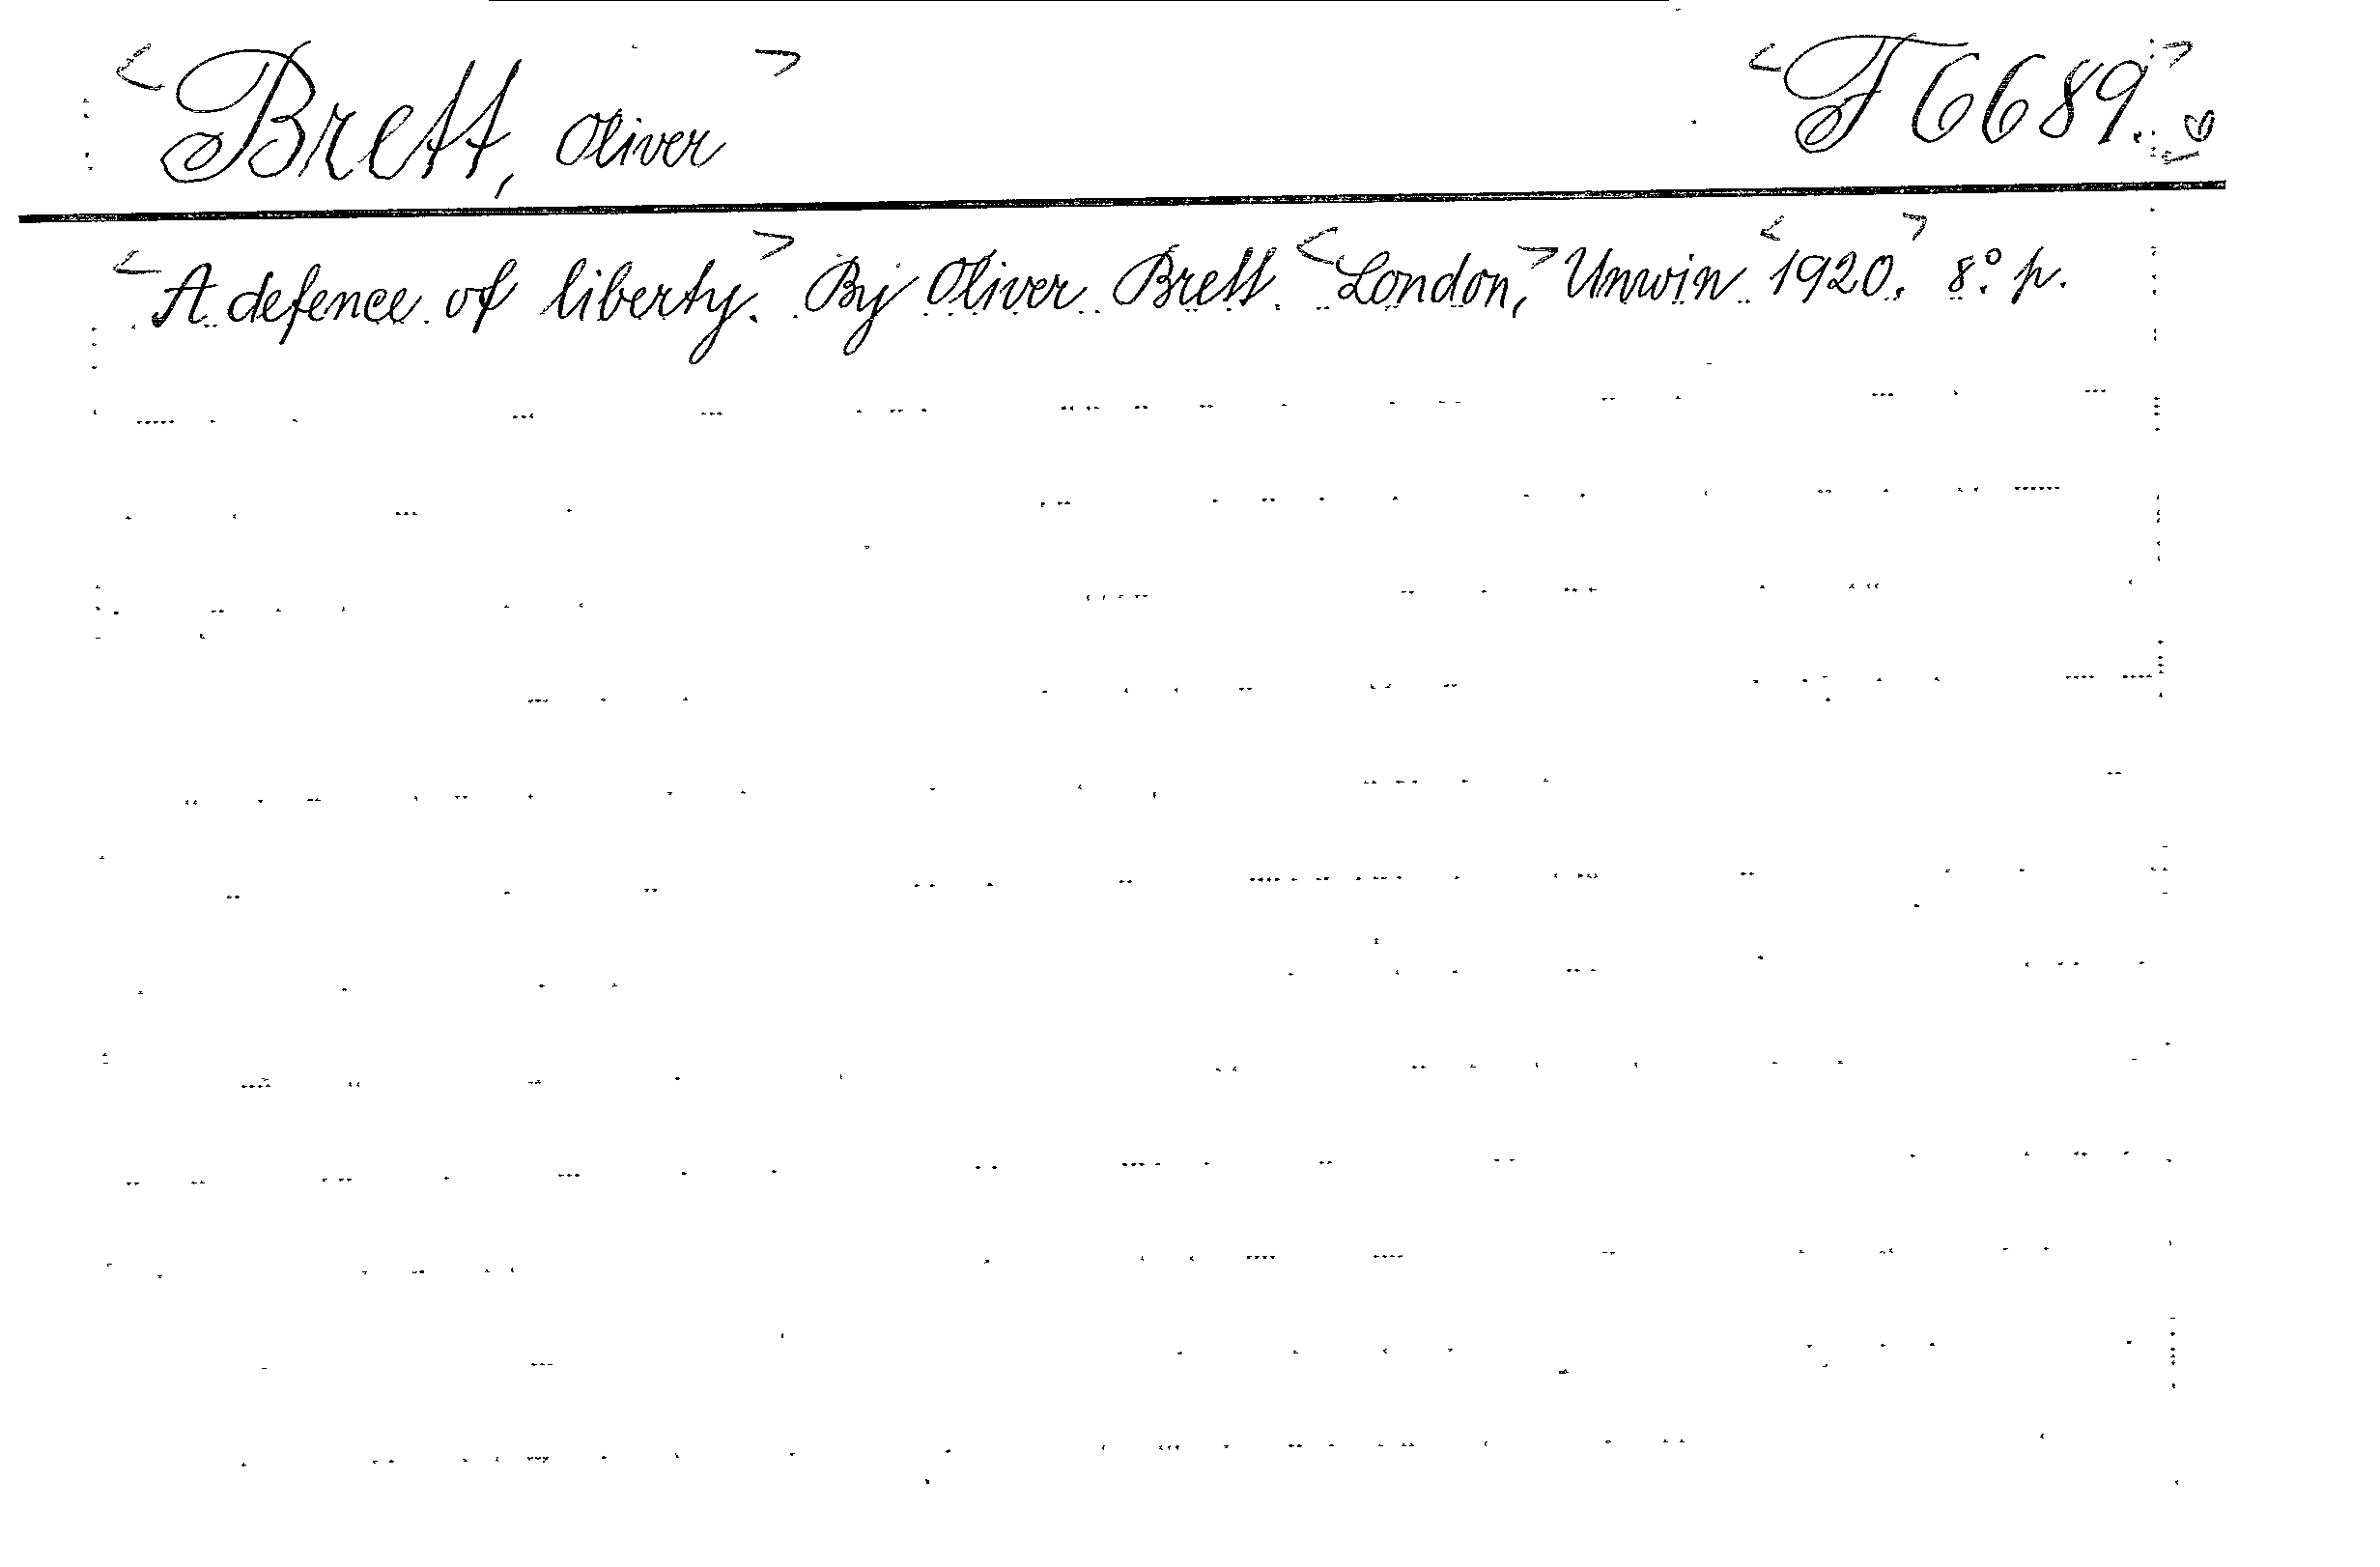 <Brett, Oliver> <F 6689.>
<A defence of liberty.> By Oliver Brett. <London,> Unwin <1920.> 8.° p.